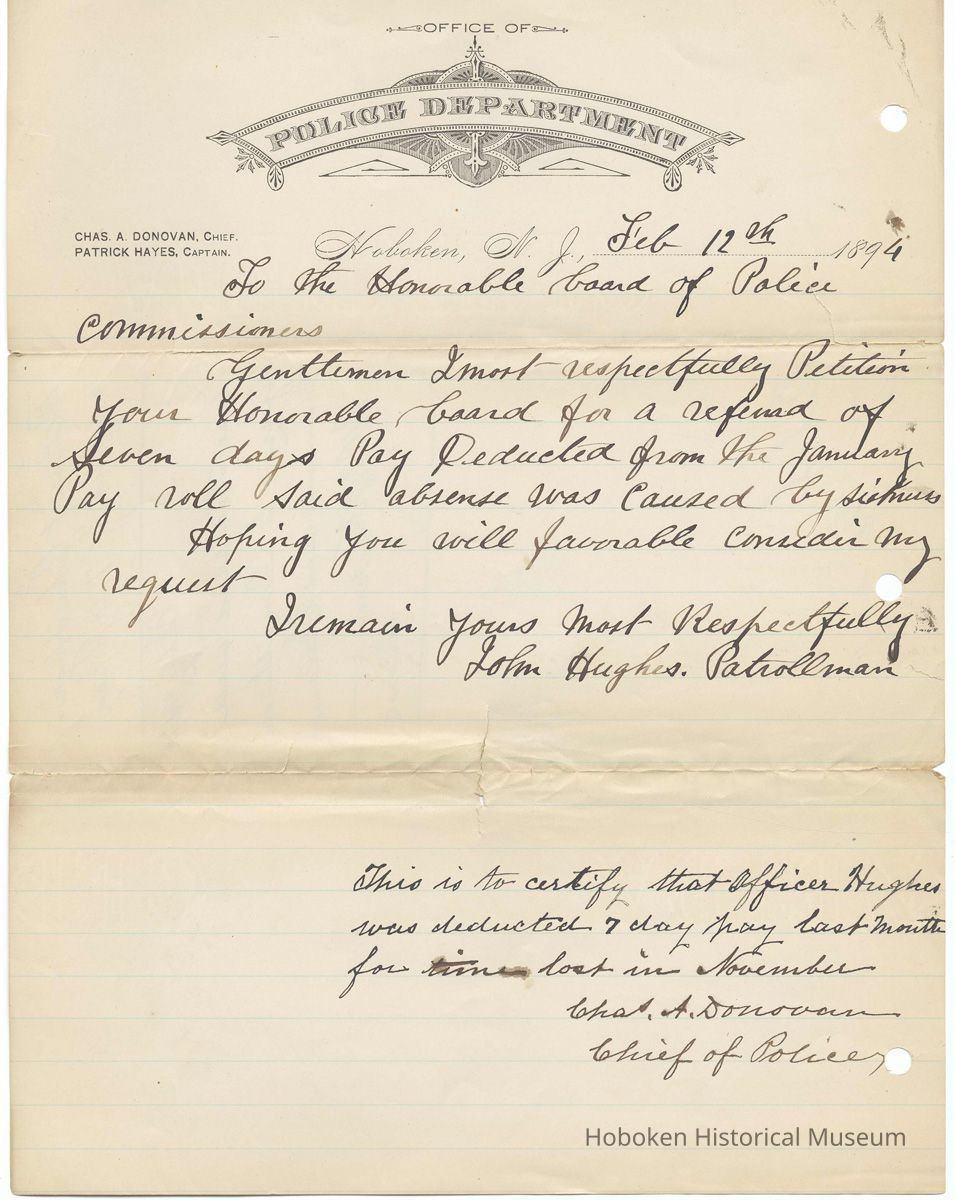 OFFICE OF
POLICE DEPARTMENT
CHAS. A. DONOVAN, CHIEF.
PATRICK HAYES, CAPTAIN.
Hoboken, N. J., Feb 12th 1894
To the Honorable board of Police
Commissioners
Gentlemen I most respectfully Petition
Your Honorable board for a refund of
Seven days Pay Deducted from the January
Pay roll Said absense was Caused by sickness
Hoping you will favorable Consider my
request
I remain Yours Most Respectfully
John Hughes. Patrollman
This is to certify that Officer Hughes
was deducted 7 day pay last Month
for time lost in November
Chas. A. Donovan
Chief of Police
Hoboken Historical Museum